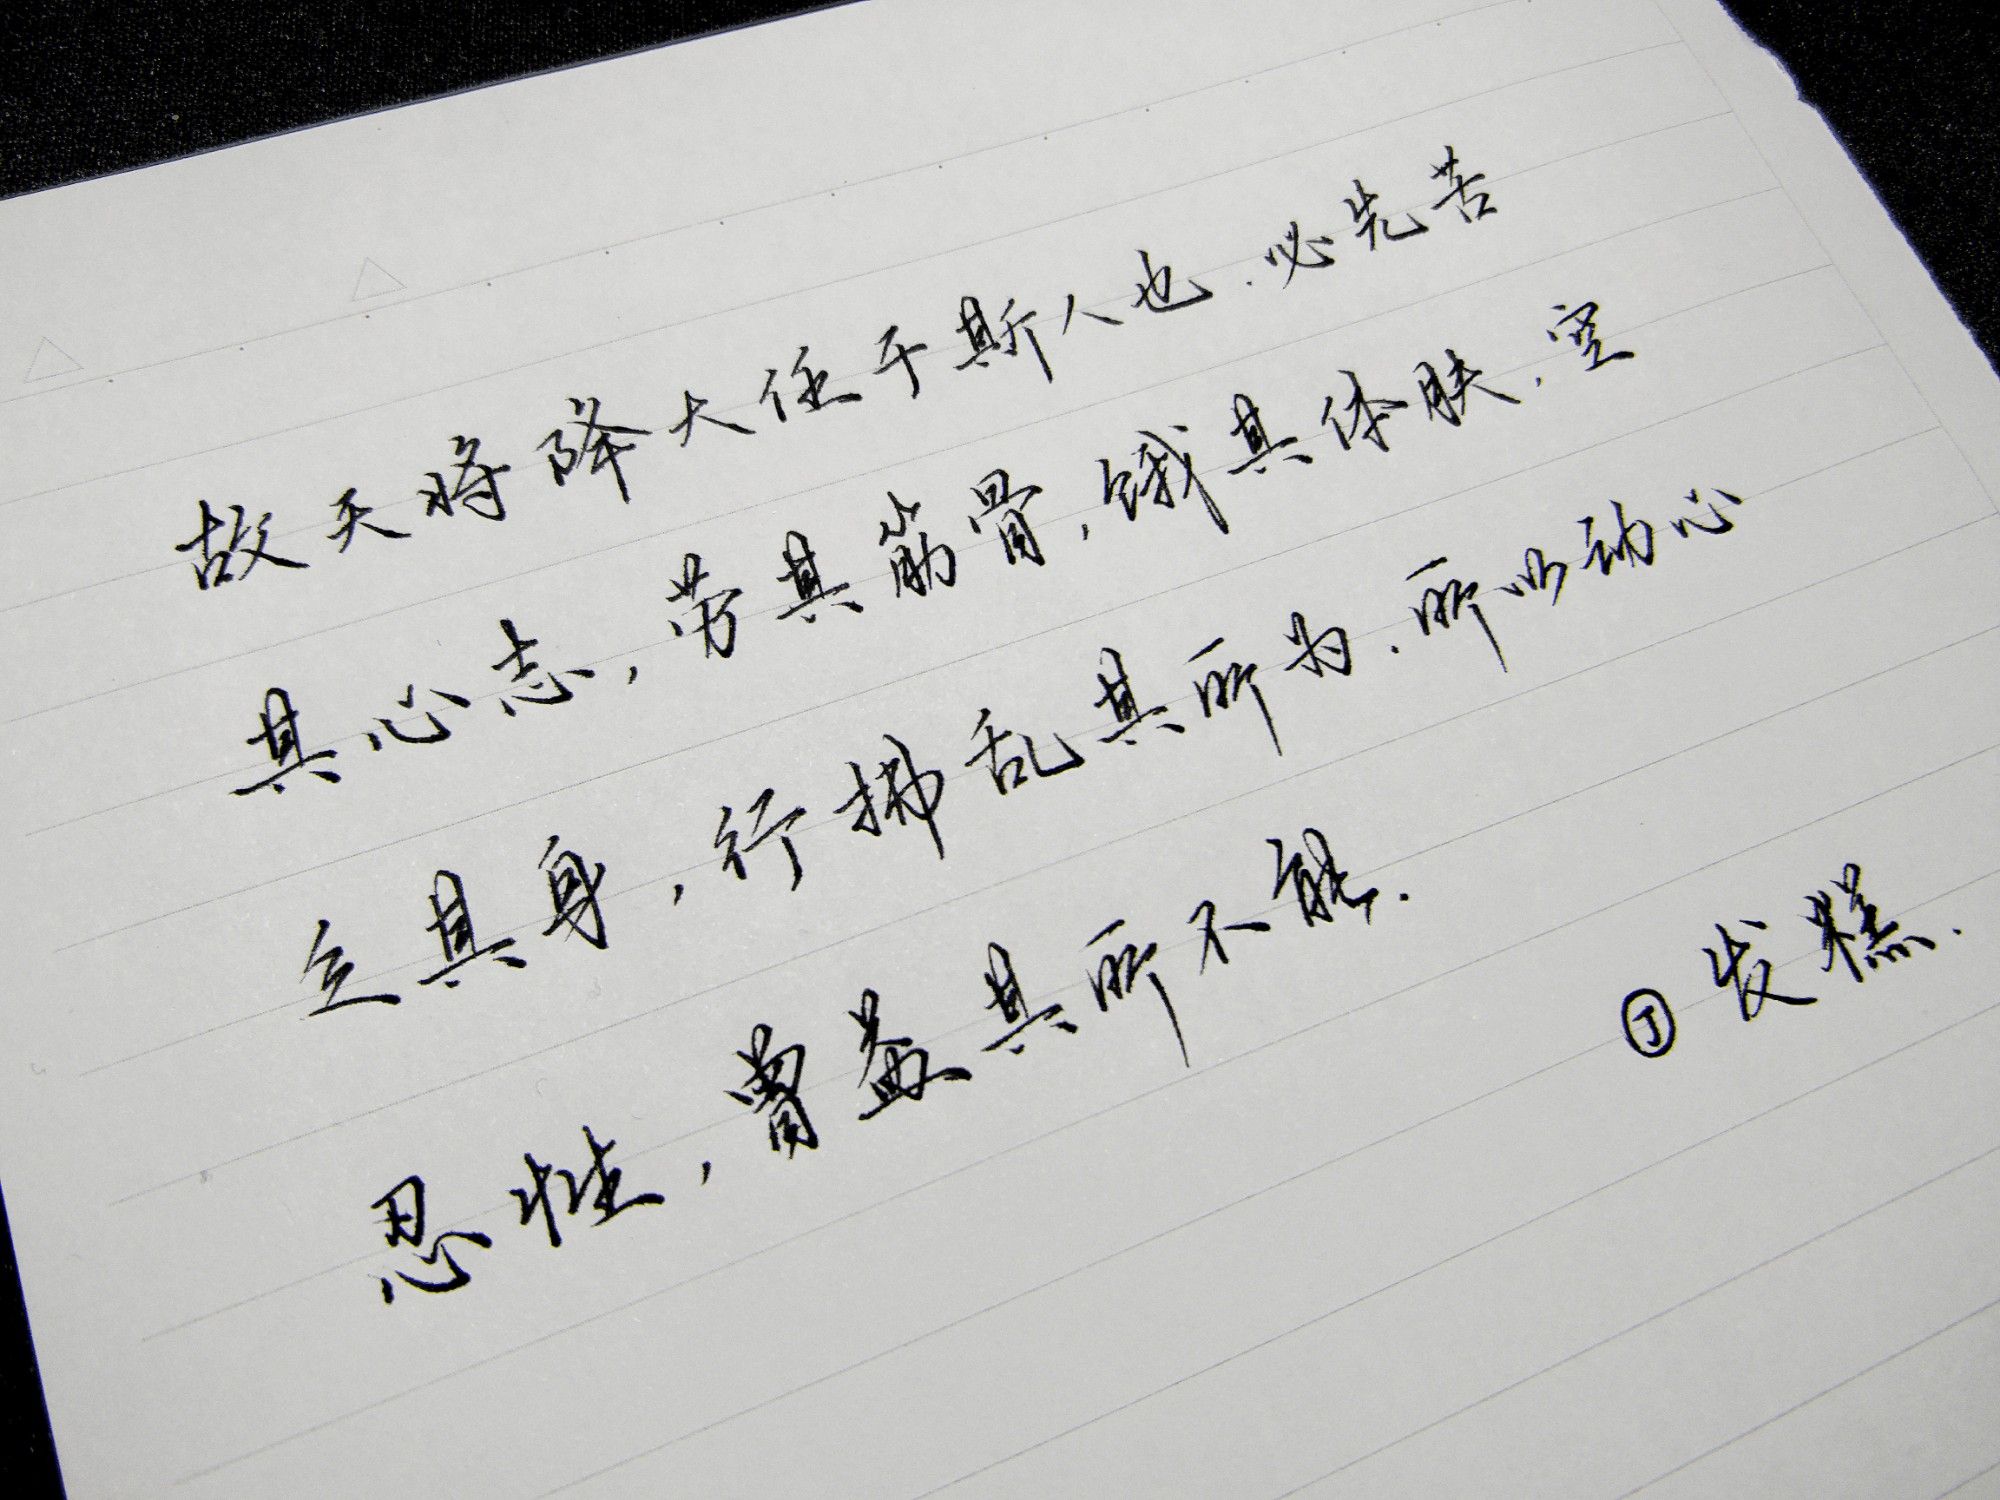 故天将降大任于斯人也.必先苦
其心志,劳其筋骨,饿其体肤,空
乏其身,行拂乱其所为.所以动心
忍性,曾益其所不能.
Ⓙ发糕.